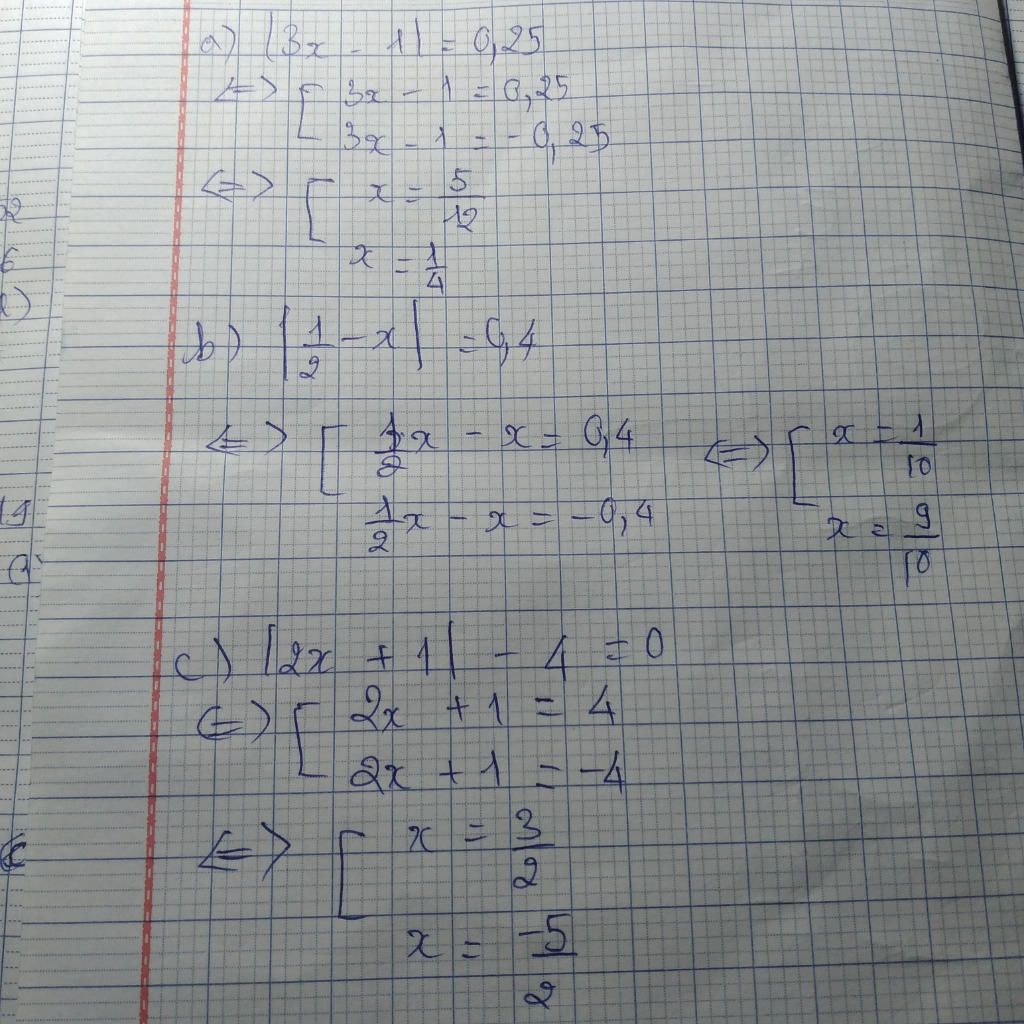 a) |3x - 1| = 0,25
<=> [ 3x - 1 = 0,25
3x - 1 = -0,25
<=> [ x = 5/12
x = 1/4
b) |1/2 - x| = 0,4
<=> [ 1/2x - x = 0,4 <=> [ x = 1/10
1/2x - x = -0,4 x = 9/10
c) |2x + 1| - 4 = 0
<=> [ 2x + 1 = 4
2x + 1 = -4
<=> [ x = 3/2
x = -5/2